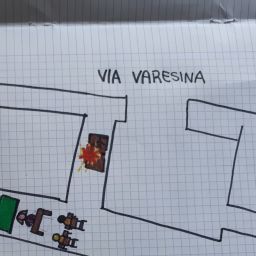 VIA VARESINA